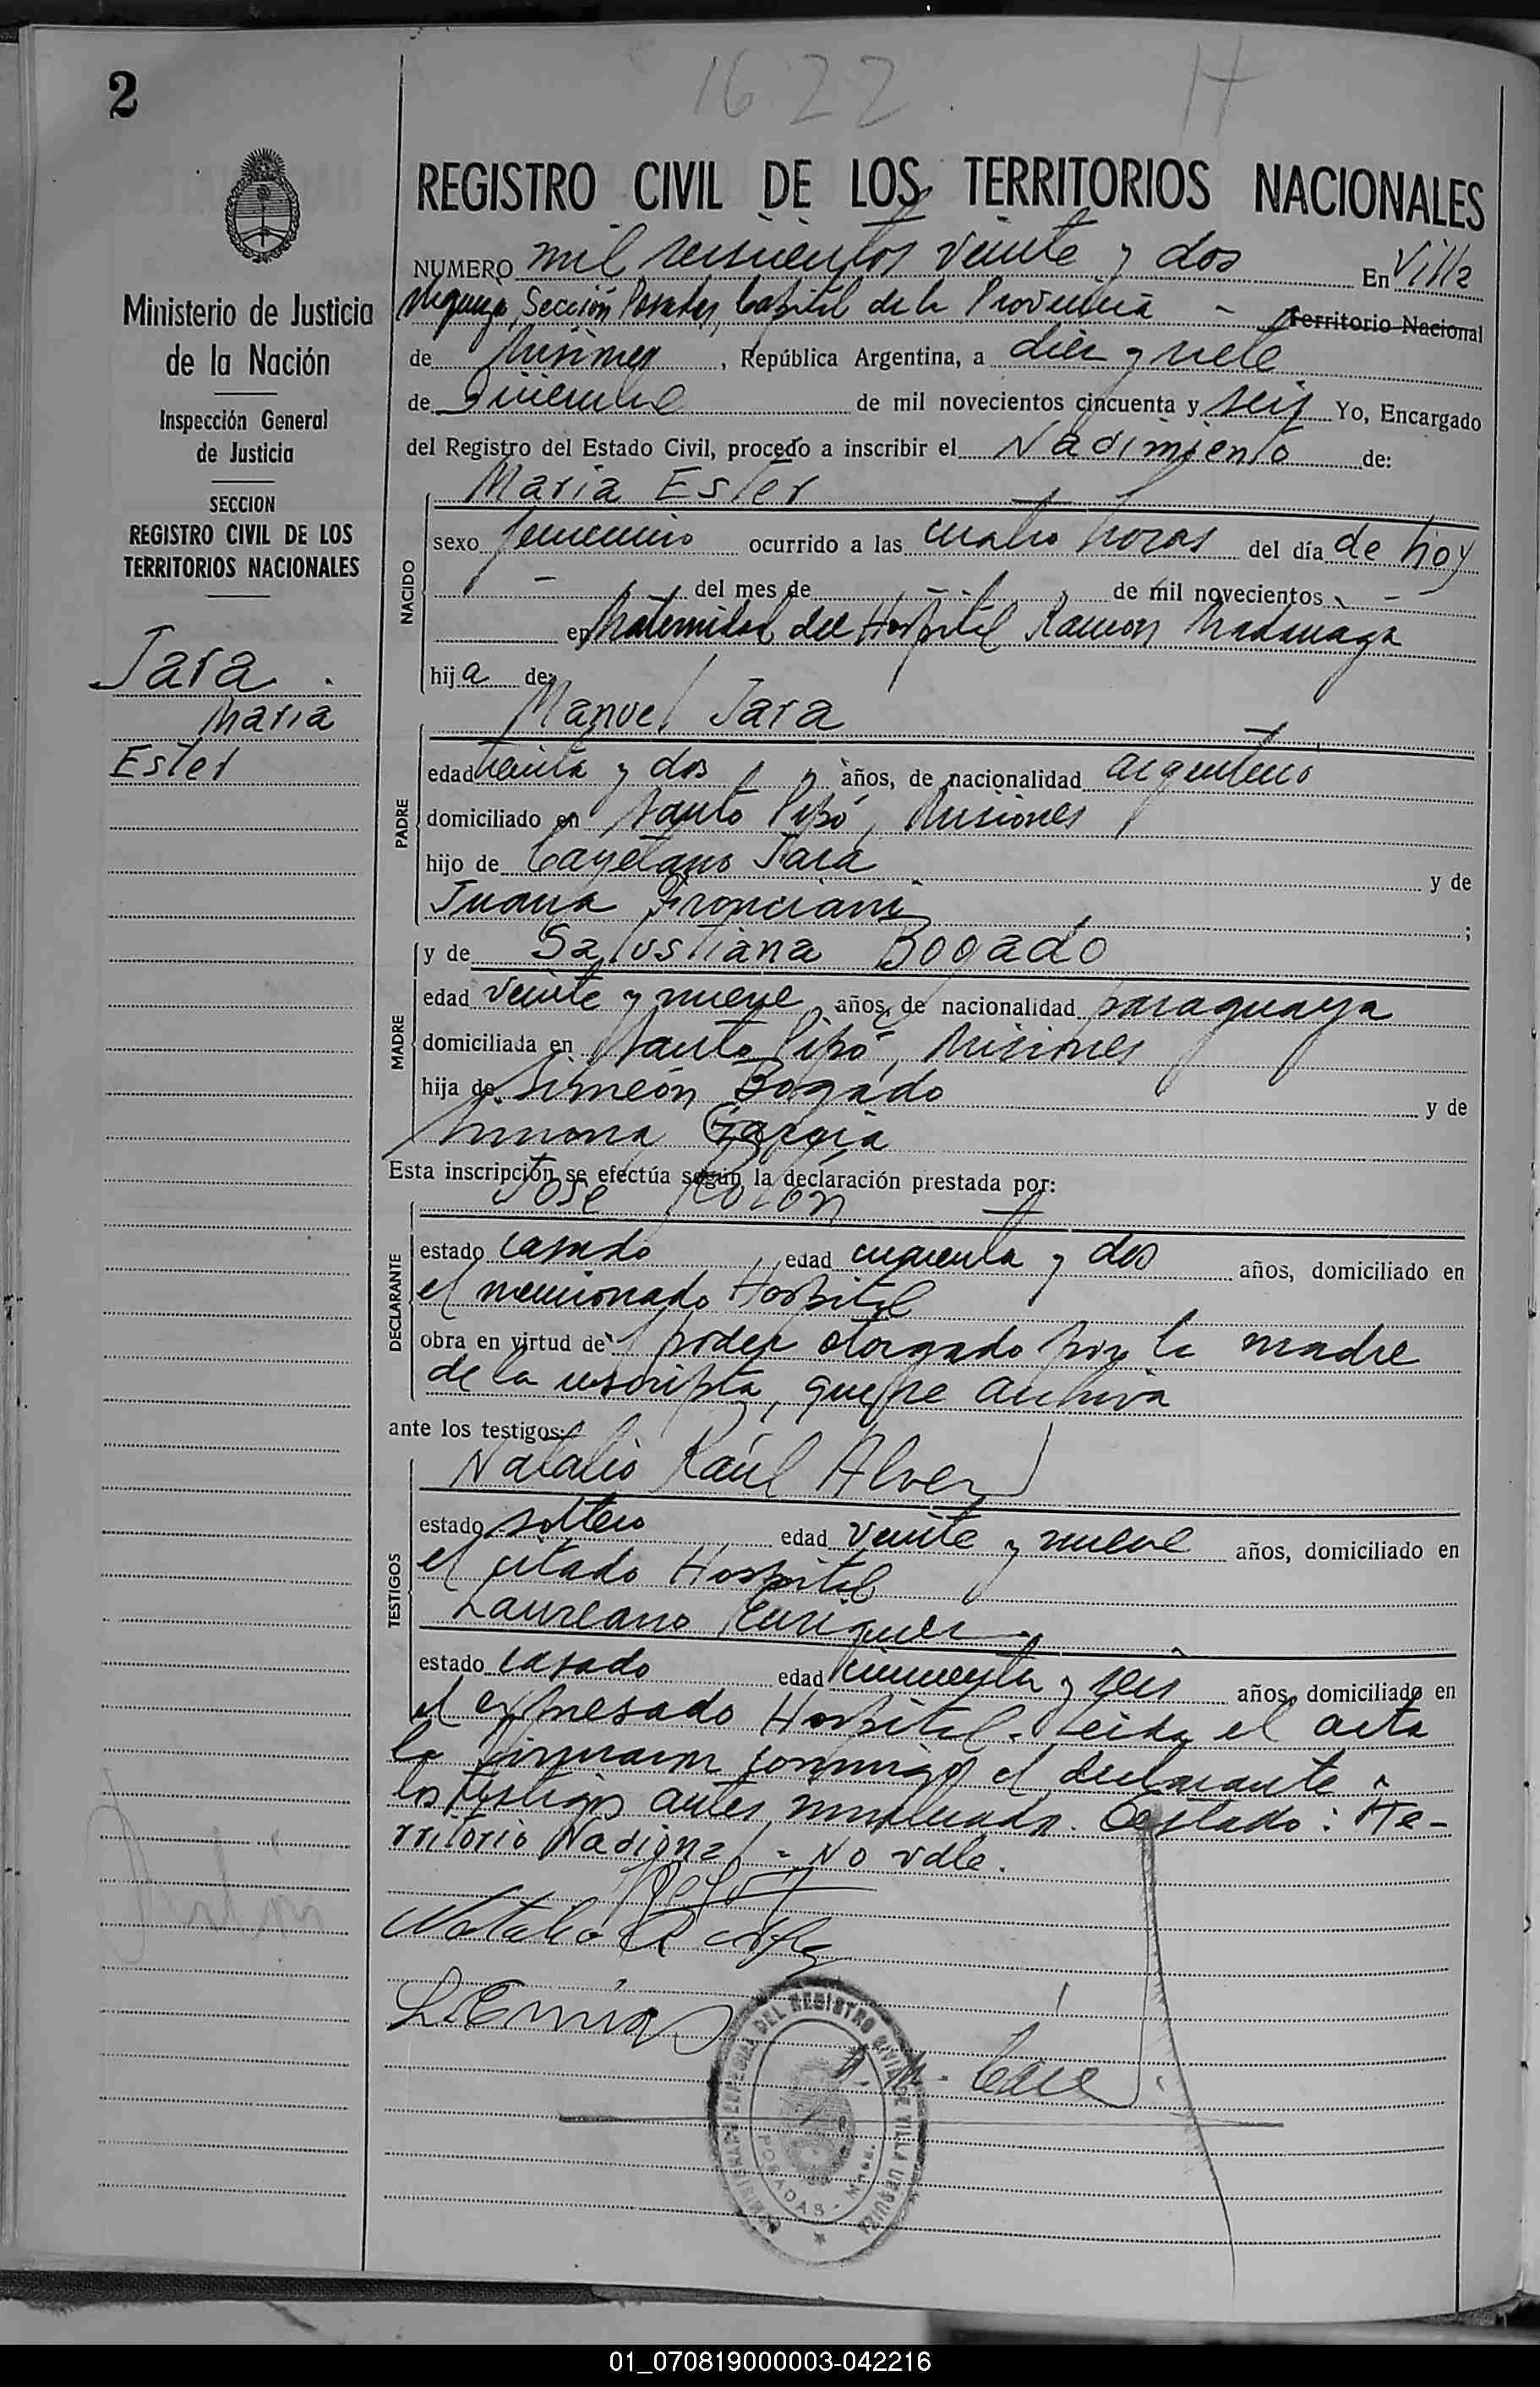 2
1622 H
REGISTRO CIVIL DE LOS TERRITORIOS NACIONALES
Ministerio de Justicia
de la Nación
Inspección General
de Justicia
SECCION
REGISTRO CIVIL DE LOS
TERRITORIOS NACIONALES
Jara
Maria
Ester
NUMERO mil seiscientos veinte y dos En Villa
Urquiza, Sección Posadas, Capital de la Provincia - Territorio Nacional
de Misiones, República Argentina, a diez y siete
de Diciembre de mil novecientos cincuenta y seis Yo, Encargado
del Registro del Estado Civil, procedo a inscribir el Nacimiento de:
NACIDO
Maria Ester
sexo femenino ocurrido a las cuatro horas del día de hoy
- del mes de - de mil novecientos -
en Maternidad del Hospital Ramon Madariaga
hija de:
PADRE
Manuel Jara
edad treinta y dos años, de nacionalidad argentino
domiciliado en Santo Pipó, Misiones
hijo de Cayetano Jara y de
Juana ;
MADRE
y de Salustiana Bogado
edad veinte y nueve años, de nacionalidad paraguaya
domiciliada en Santo Pipó, Misiones
hija de Simeón Bogado y de
García
Esta inscripción se efectúa según la declaración prestada por:
DECLARANTE
José Rolón
estado casado edad cuarenta y dos años, domiciliado en
el mencionado Hospital
obra en virtud de poder otorgado por la madre
de la inscripta, que se archiva
ante los testigos:
TESTIGOS
Natalio Raúl Alvez
estado soltero edad veinte y nueve años, domiciliado en
el citado Hospital
Laureano Enriquez
estado casado edad cincuenta y seis años, domiciliado en
el expresado Hospital. Leida el acta
la firmaron conmigo el declarante y
los testigos antes nombrados. Testado: "Te-
rritorio Nacional" = No vale.
DEL REGISTRO CIVIL DE VILLA URQUIZA
POSADAS - MNES.
01_070819000003-042216